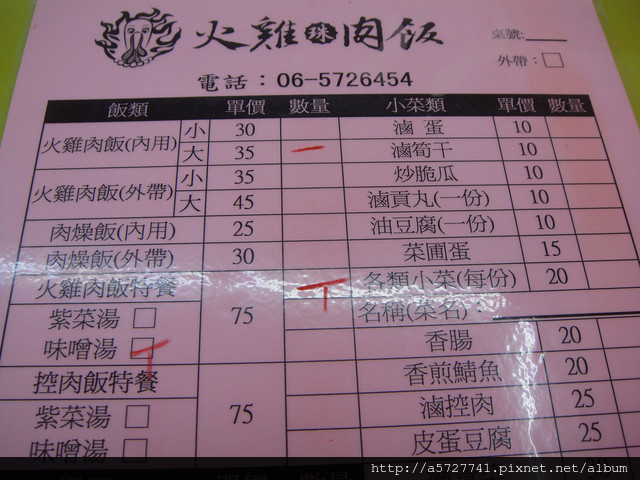 火雞珠肉飯
桌號:
外帶:
電話:06-5726454
飯類 單價 數量 小菜類 單價 數量
火雞肉飯(內用) 小 30 滷蛋 10
大 35 滷筍干 10
火雞肉飯(外帶) 小 35 炒脆瓜 10
大 45 滷貢丸(一份) 10
肉燥飯(內用) 25 油豆腐(一份) 10
肉燥飯(外帶) 30 菜圃蛋 15
火雞肉飯特餐 75 各類小菜(每份) 20
紫菜湯 名稱(菜名):
味噌湯 香腸 20
控肉飯特餐 75 香煎鯖魚 20
紫菜湯 滷控肉 25
味噌湯 皮蛋豆腐 25
http://a5727741.pixnet.net/album